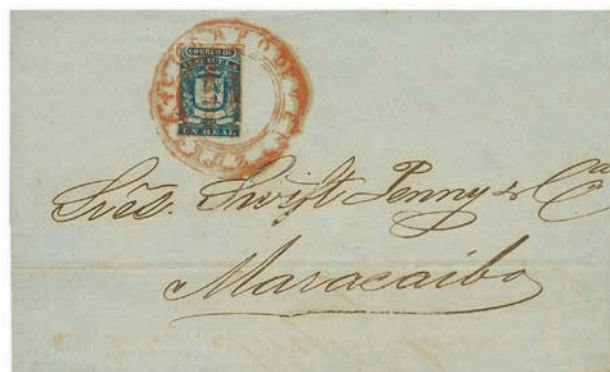 CORREO DE
VENEZUELA
UN REAL
Sres. Swift Penny & Ca
Maracaibo